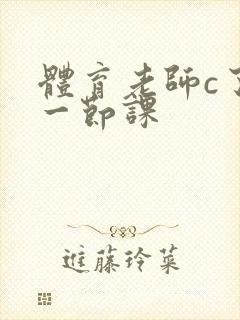 體育老師c了
一節課
進藤玲菜